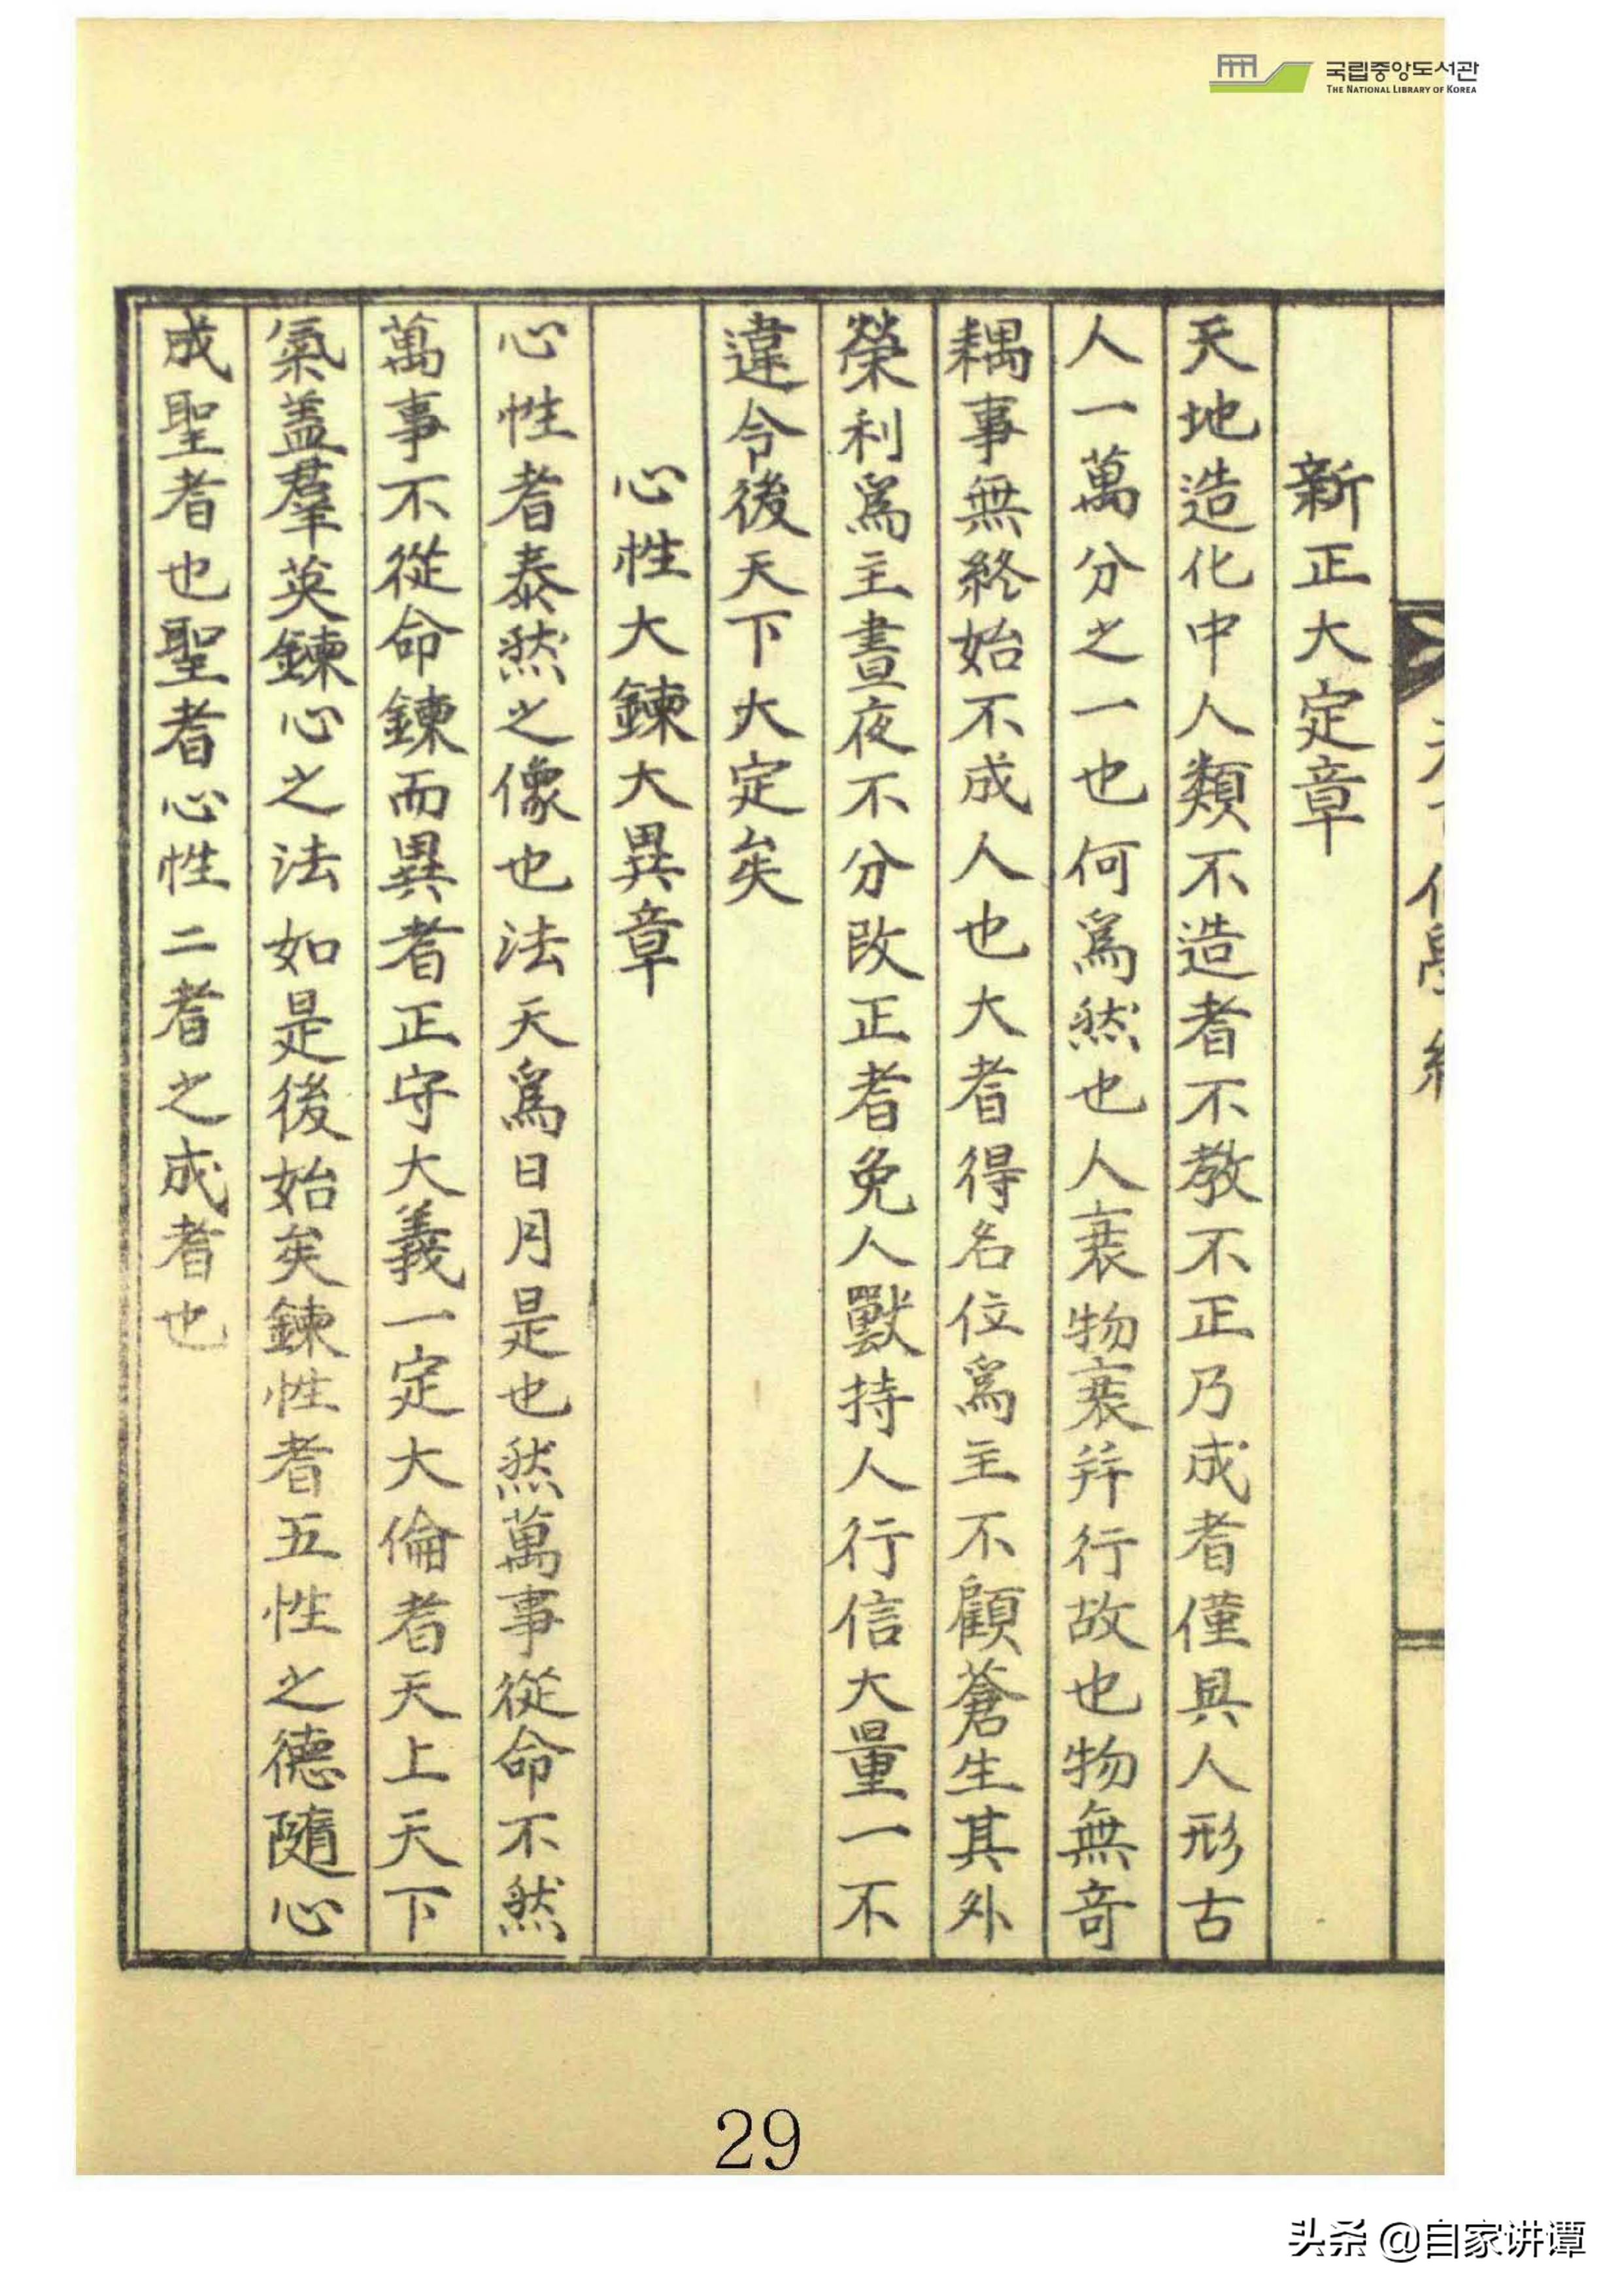 국립중앙도서관
THE NATIONAL LIBRARY OF KOREA
新正大定章
天地造化中人類不造者不教不正乃成者僅具人形古
人一萬分之一也何爲然也人衰物衰并行故也物無奇
耦事無終始不成人也大者得名位爲主不顧蒼生其外
榮利爲主晝夜不分改正者免人獸持人行信大量一不
違令後天下大定矣
心性大鍊大異章
心性者泰然之像也法天爲日月是也然萬事從命不然
萬事不從命鍊而異者正守大義一定大倫者天上天下
氣盖羣英鍊心之法如是後始矣鍊性者五性之德隨心
成聖者也聖者心性二者之成者也
29
头条 @自家讲谭